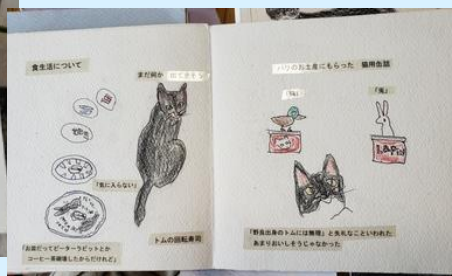 食生活について
まだ何か 出てきそう
「気に入らない」
「お皿だってピーターラビットとか
コーヒー茶碗壊したからだけれど」
トムの回転寿司
パリのお土産にもらった 猫用缶詰
「鴨」
「兎」
Lapin
「野良出身のトムには無理」と失礼なこといわれた
あまりおいしそうじゃなかった